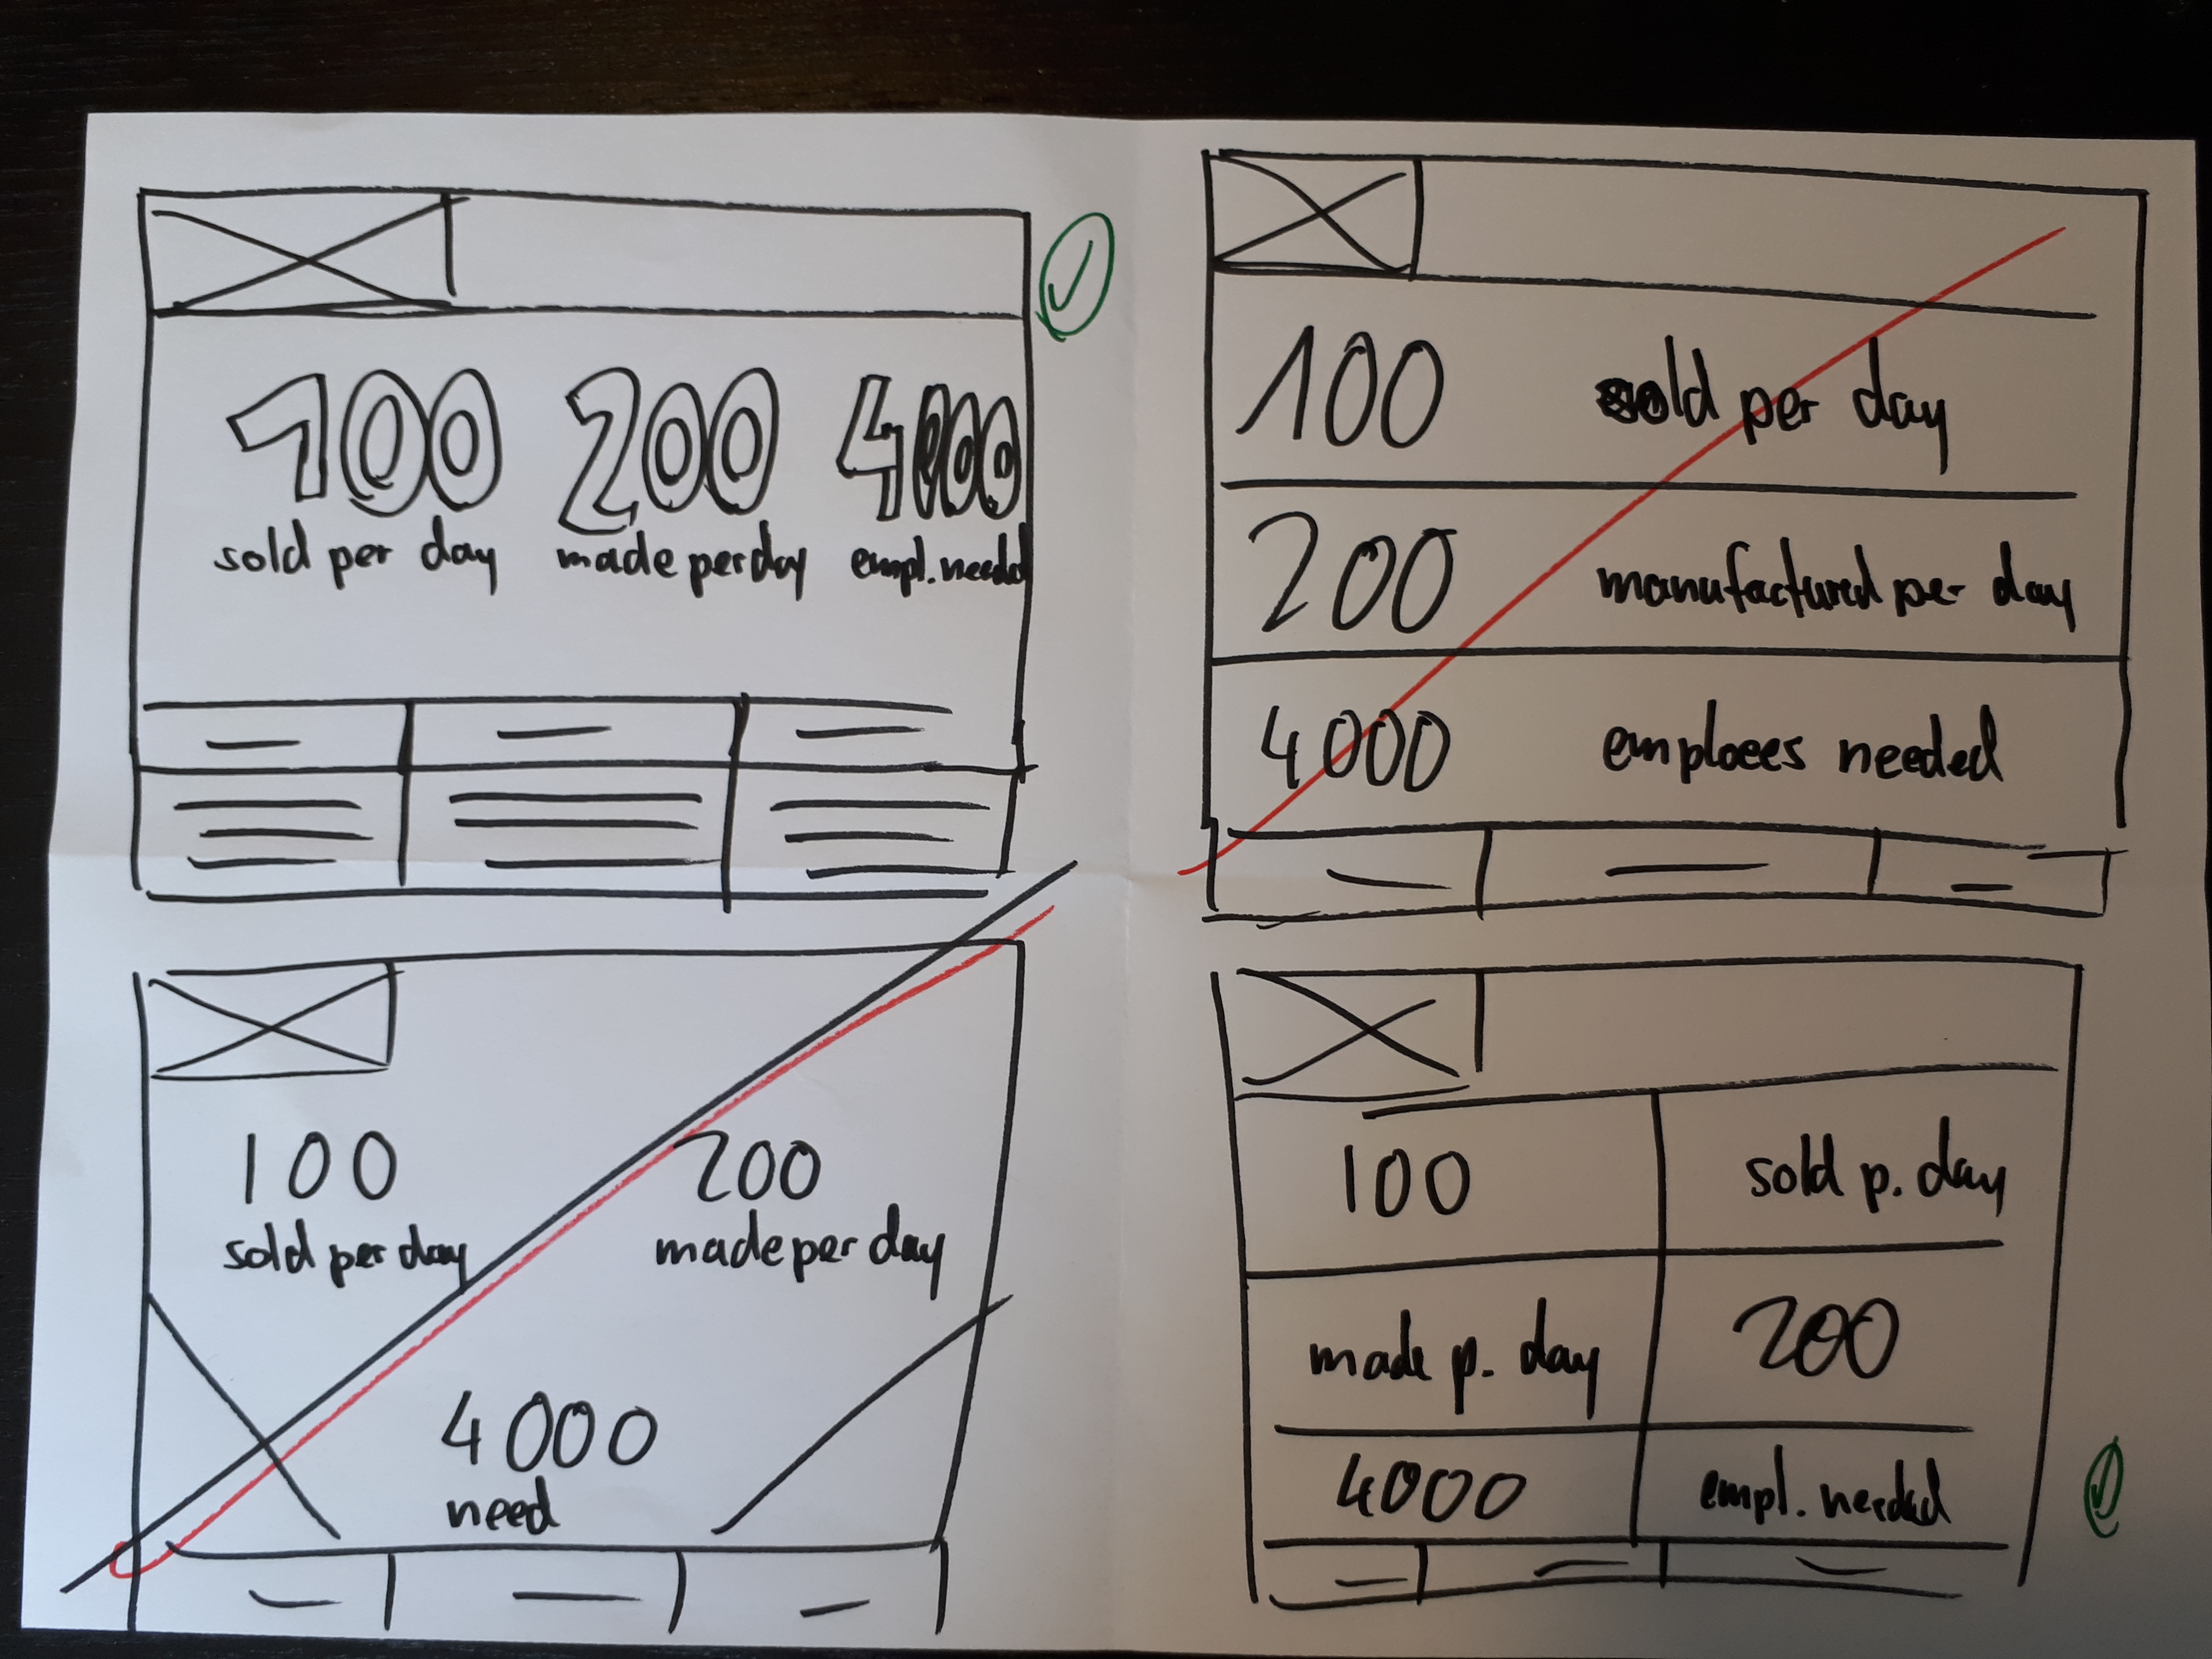 100 200 4000
sold per day made per day empl. needed
100 sold per day
200 manufactured per day
4000 emploees needed
100 200
sold per day made per day
4000
need
100 sold p. day
made p. day 200
4000 empl. needed